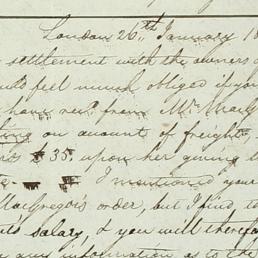 London 26th January 18
settlement with the owners o
feel much obliged if you
have recd from Mr Macg
on amount of freight
$35 upon her giving
I mentioned your
MacGregor's order, but I find, to
salary, & you will therefo
any information as to the